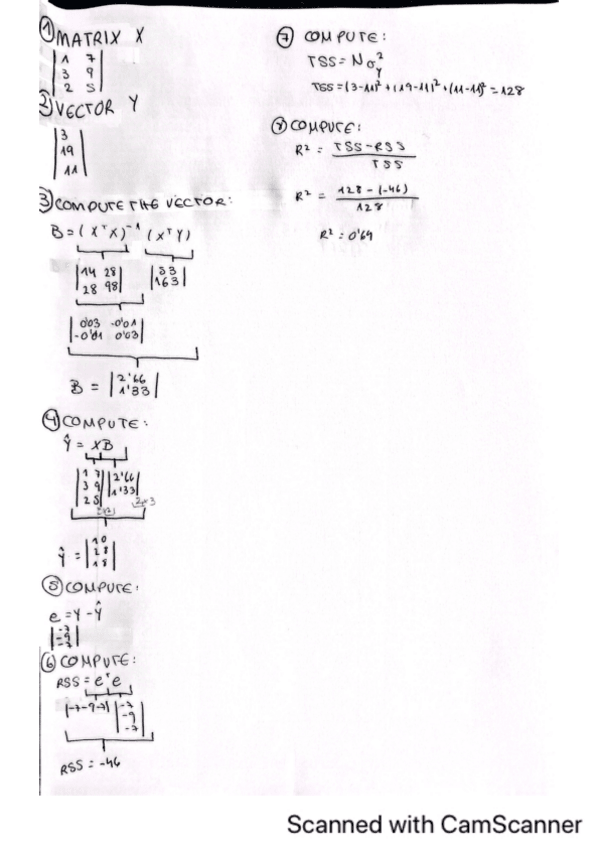 ① MATRIX X
|1 7|
|3 9|
|2 5|
② VECTOR Y
|3|
|19|
|11|
③ COMPUTE THE VECTOR:
B = (XᵀX)⁻¹ (XᵀY)
|14 28| |33|
|28 98| |163|
|0'03 -0'01|
|-0'01 0'03|
B = |2'66|
|1'33|
④ COMPUTE:
Ŷ = XB
|1 7| |2'66|
|3 9| |1'33|
|2 5|
Ŷ = |10|
|28|
|18|
⑤ COMPUTE:
e = Y - Ŷ
|-7|
|-9|
|-7|
⑥ COMPUTE:
RSS = eᵀe
|-7 -9 -7| |-7|
|-9|
|-7|
RSS = -46
⑦ COMPUTE:
TSS = Nσ²Y
TSS = (3-11)² + (19-11)² + (11-11)² = 128
⑧ COMPUTE:
R² = TSS - RSS
TSS
R² = 128 - (-46)
128
R² = 0'64
Scanned with CamScanner